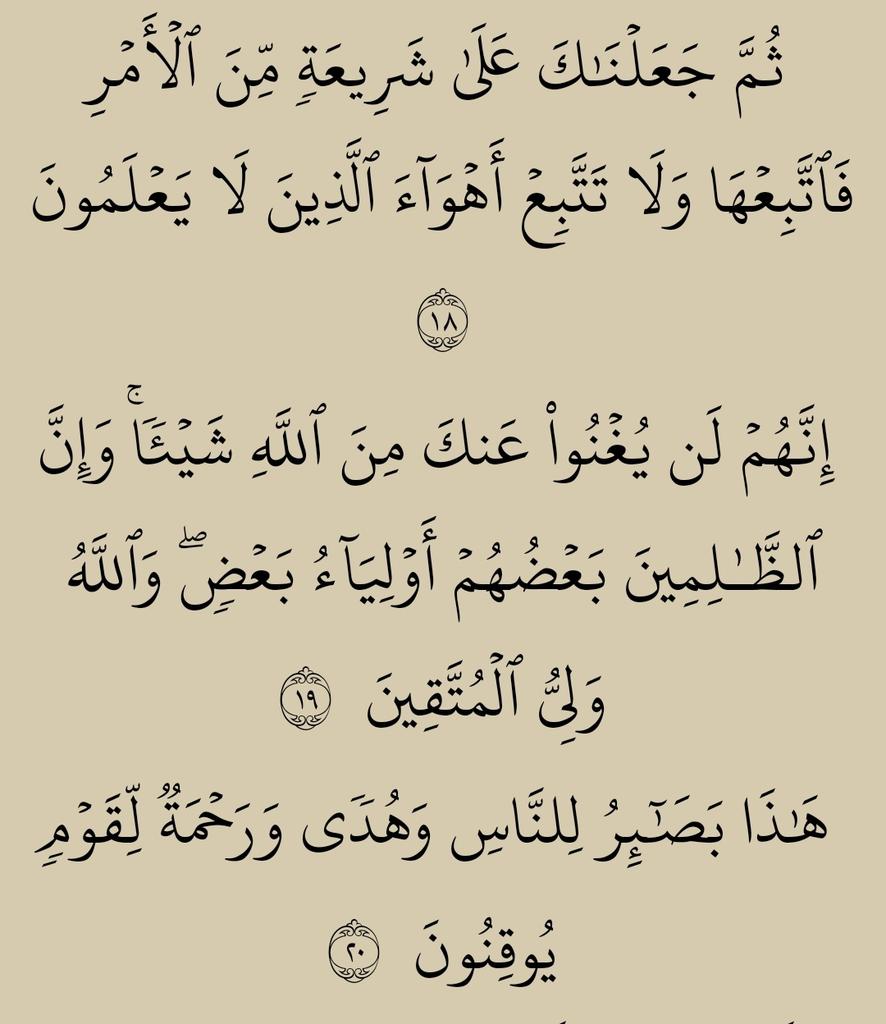 ثُمَّ جَعَلْنَـٰكَ عَلَىٰ شَرِيعَةٍۢ مِّنَ ٱلْأَمْرِ
فَٱتَّبِعْهَا وَلَا تَتَّبِعْ أَهْوَآءَ ٱلَّذِينَ لَا يَعْلَمُونَ
١٨
إِنَّهُمْ لَن يُغْنُوا۟ عَنكَ مِنَ ٱللَّهِ شَيْـًۭٔا ۚ وَإِنَّ
ٱلظَّـٰلِمِينَ بَعْضُهُمْ أَوْلِيَآءُ بَعْضٍۢ ۖ وَٱللَّهُ
وَلِىُّ ٱلْمُتَّقِينَ ١٩
هَـٰذَا بَصَـٰٓئِرُ لِلنَّاسِ وَهُدًۭى وَرَحْمَةٌۭ لِّقَوْمٍۢ
يُوقِنُونَ ٢٠